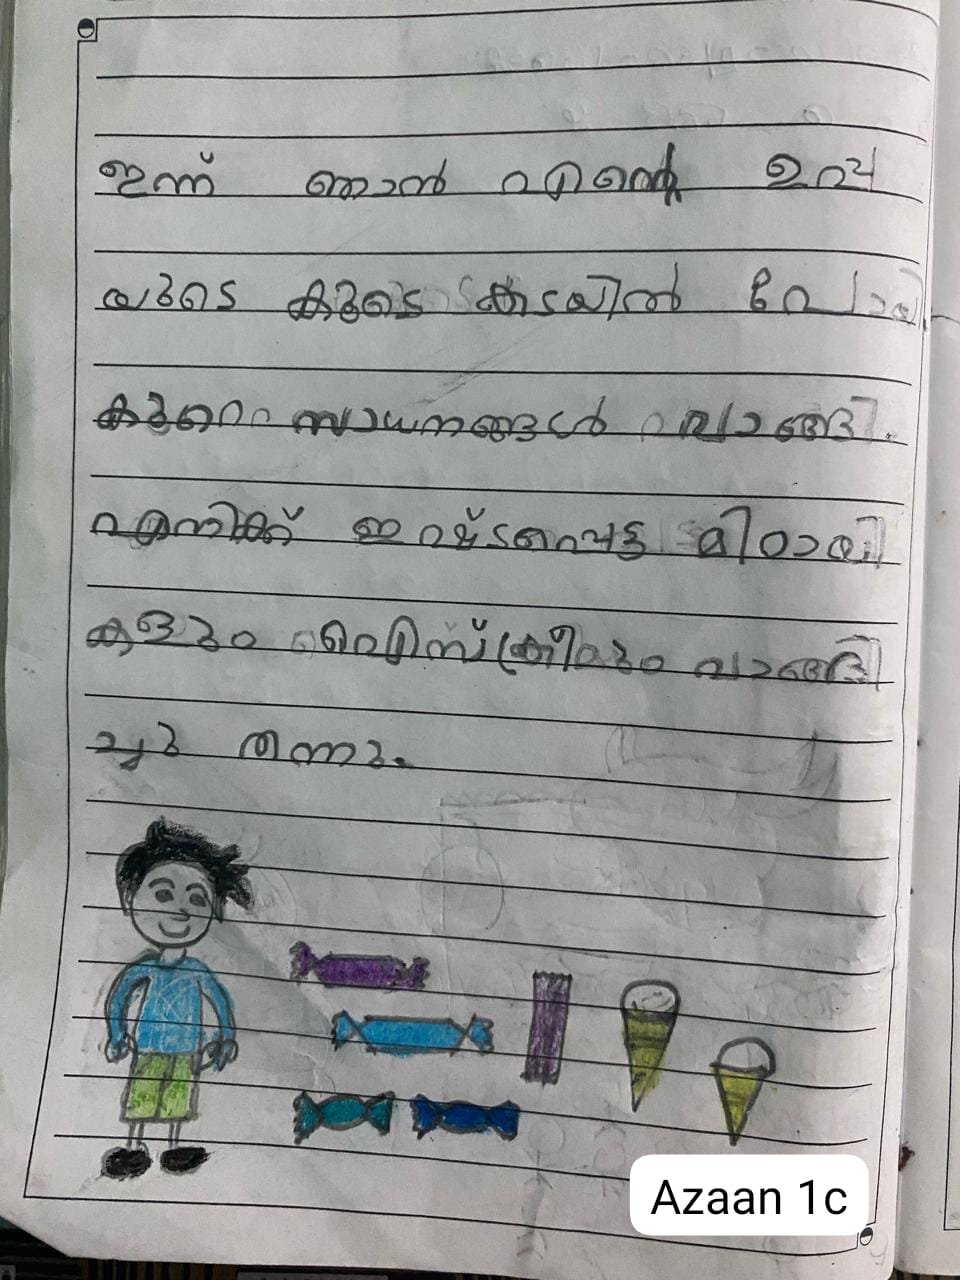 ഇന്ന് ഞാൻ എന്റെ ഉപ്പ
യുടെ കൂടെ കടയിൽ പോയി
കുറെ സാധനങ്ങൾ വാങ്ങി.
എനിക്ക് ഇഷ്ടപ്പെട്ട മിഠായി
കളും ഐസ്ക്രീമും വാങ്ങി
ച്ചു തന്നു.
Azaan 1c